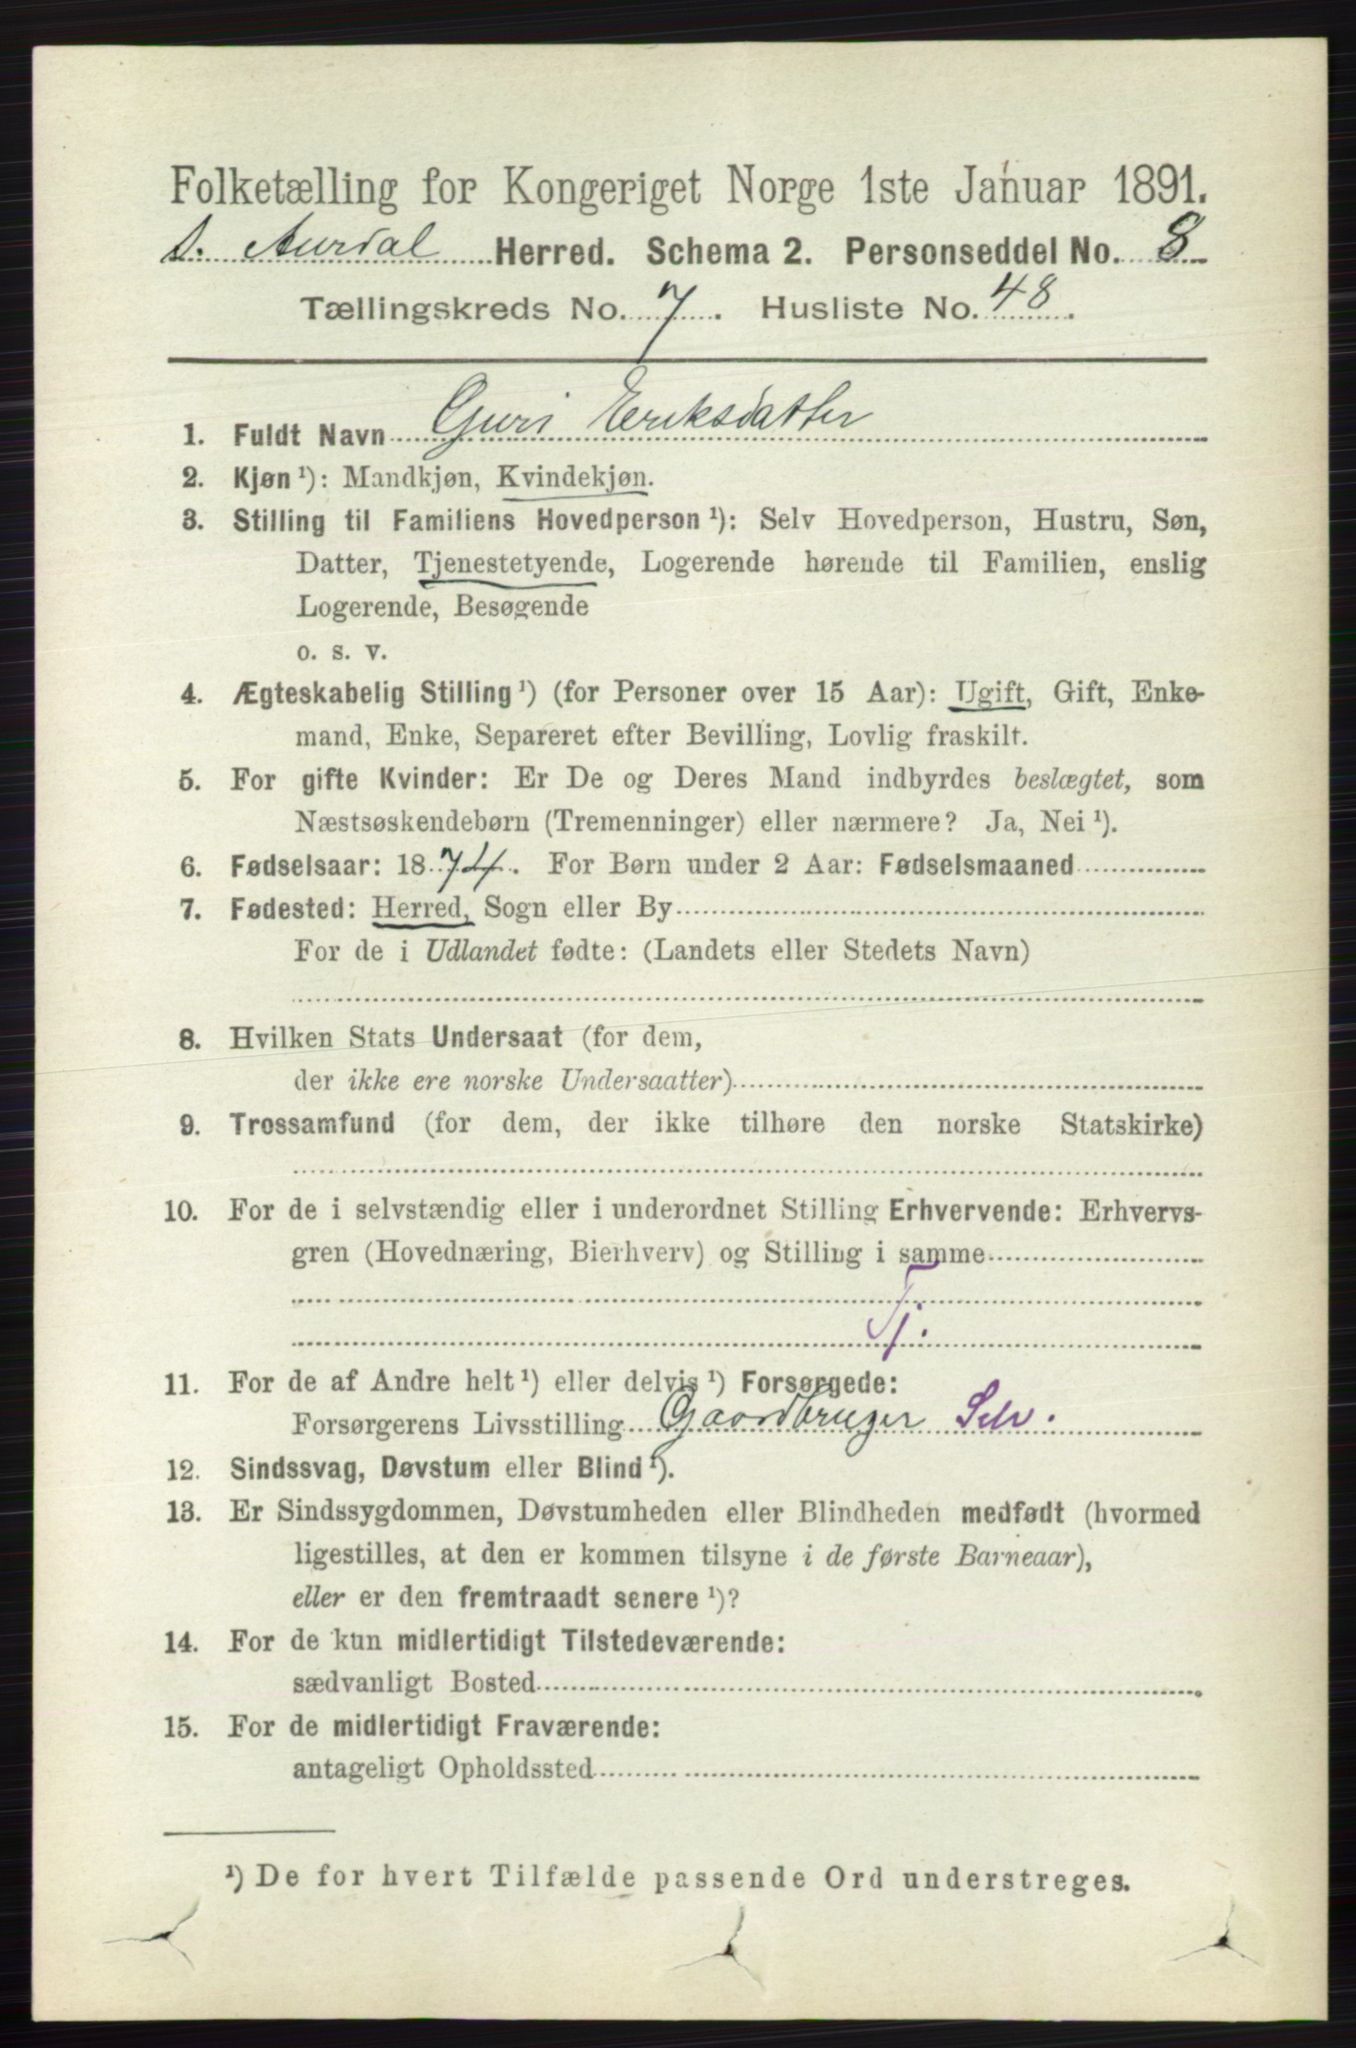 Folketælling for Kongeriget Norge 1ste Januar 1891.
S. Aurdal Herred. Schema 2. Personseddel No. 8
Tællingskreds No. 7. Husliste No. 48.
1. Fuldt Navn Guri Eriksdatter
2. Kjøn ¹): Mandkjøn, Kvindekjøn.
3. Stilling til Familiens Hovedperson ¹): Selv Hovedperson, Hustru, Søn,
Datter, Tjenestetyende, Logerende hørende til Familien, enslig
Logerende, Besøgende
o. s. v.
4. Ægteskabelig Stilling ¹) (for Personer over 15 Aar): Ugift, Gift, Enke-
mand, Enke, Separeret efter Bevilling, Lovlig fraskilt.
5. For gifte Kvinder: Er De og Deres Mand indbyrdes beslægtet, som
Næstsøskendebørn (Tremenninger) eller nærmere? Ja, Nei ¹).
6. Fødselsaar: 1874. For Børn under 2 Aar: Fødselsmaaned
7. Fødested: Herred, Sogn eller By
For de i Udlandet fødte: (Landets eller Stedets Navn)
8. Hvilken Stats Undersaat (for dem,
der ikke ere norske Undersaatter)
9. Trossamfund (for dem, der ikke tilhøre den norske Statskirke)
10. For de i selvstændig eller i underordnet Stilling Erhvervende: Erhvervs-
gren (Hovednæring, Bierhverv) og Stilling i samme
Tj.
11. For de af Andre helt ¹) eller delvis ¹) Forsørgede:
Forsørgerens Livsstilling Gaardbruger Selv.
12. Sindssvag, Døvstum eller Blind ¹).
13. Er Sindssygdommen, Døvstumheden eller Blindheden medfødt (hvormed
ligestilles, at den er kommen tilsyne i de første Barneaar),
eller er den fremtraadt senere ¹)?
14. For de kun midlertidigt Tilstedeværende:
sædvanligt Bosted
15. For de midlertidigt Fraværende:
antageligt Opholdssted
¹) De for hvert Tilfælde passende Ord understreges.